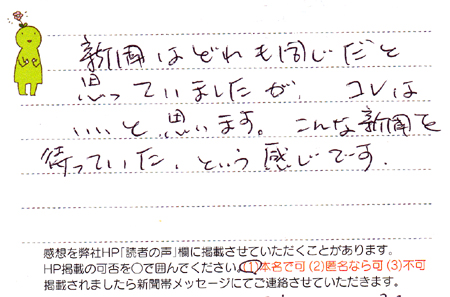 新聞はどれも同じだと
思っていましたが、コレは
いいと思います。こんな新聞を
待っていた、という感じです.
感想を弊社HP「読者の声」欄に掲載させていただくことがあります。
HP掲載の可否を○で囲んでください。(1)本名で可 (2)匿名なら可 (3)不可
掲載されましたら新聞帯メッセージにてご連絡させていただきます。